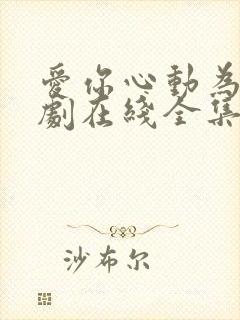 愛你心動為
劇在綫全集
沙布尔